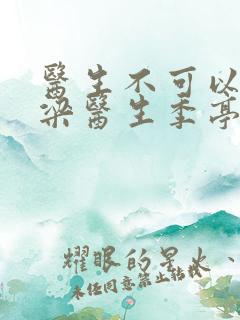 醫生不可以
梁醫生季亭
耀眼的星火、
未经同意禁止转载